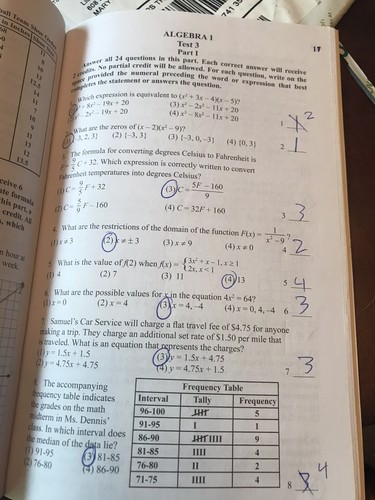 ALGEBRA 1
Test 3
Part I
17
Answer all 24 questions in this part. Each correct answer will receive
2 credits. No partial credit will be allowed. For each question, write on the
provided the numeral preceding the word or expression that best
completes the statement or answers the question.
Which expression is equivalent to (x² + 3x – 4)(x – 5)?
+ 8x² – 19x + 20 (3) x³ – 2x² – 11x + 20
– 2x² – 19x + 20 (4) x³ – 8x² – 11x + 20
1 2
What are the zeros of (x – 2)(x² – 9)?
{-3, 2, 3} (2) {-3, 3} (3) {-3, 0, -3} (4) {0, 3}
2 1
The formula for converting degrees Celsius to Fahrenheit is
F = 9/5 C + 32. Which expression is correctly written to convert
Fahrenheit temperatures into degrees Celsius?
(1) C = 9/5 F + 32 (3) C = 5F – 160/9
C = F – 160 (4) C = 32F + 160
3 3
4. What are the restrictions of the domain of the function F(x) = 1/x² – 9?
(1) x ≠ 3 (2) x ≠ ± 3 (3) x ≠ 9 (4) x ≠ 0
4 2
5. What is the value of f(2) when f(x) = {3x² + x – 1, x ≥ 1
2x, x < 1
(1) 4 (2) 7 (3) 11 (4) 13
5 4
6. What are the possible values for x in the equation 4x² = 64?
(1) x = 0 (2) x = 4 (3) x = 4, –4 (4) x = 0, 4, –4
6 3
7. Samuel's Car Service will charge a flat travel fee of $4.75 for anyone
making a trip. They charge an additional set rate of $1.50 per mile that
is traveled. What is an equation that represents the charges?
(1) y = 1.5x + 1.5 (3) y = 1.5x + 4.75
(2) y = 4.75x + 4.75 (4) y = 4.75x + 1.5
7 3
8. The accompanying
frequency table indicates
the grades on the math
midterm in Ms. Dennis'
class. In which interval does
the median of the data lie?
(1) 91-95 (3) 81-85
(2) 76-80 (4) 86-90
Frequency Table
Interval Tally Frequency
96-100 5
91-95 I 1
86-90 9
81-85 IIII 4
76-80 II 2
71-75 IIII 4
8 3 4